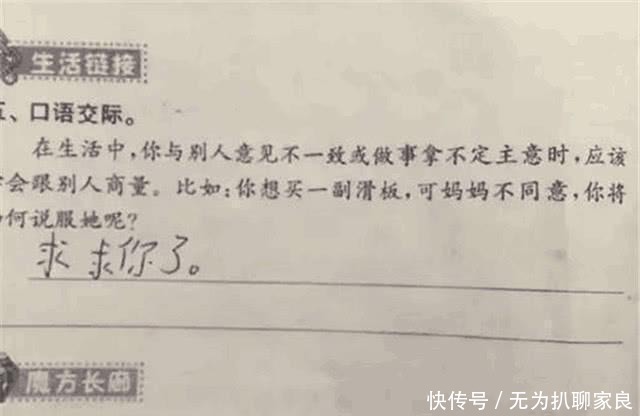 生活链接
、口语交际。
在生活中，你与别人意见不一致或做事拿不定主意时，应该
会跟别人商量。比如：你想买一副滑板，可妈妈不同意，你将
何说服她呢？
求求你了。
魔方长廊
快传号／无为扒聊家良